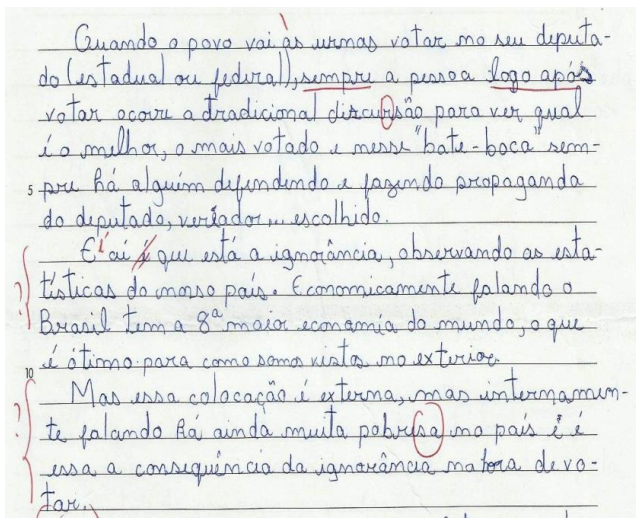 Quando o povo vai às urnas votar no seu deputa-
do (estadual ou federal), sempre a pessoa logo após
votar ocorre a tradicional discursão para ver qual
é o melhor, o mais votado e nesse "bate-boca" sem-
5 pre há alguém defendendo e fazendo propaganda
do deputado, veriador... escolhido.
E aí é que está a ignorância, observando as esta-
tísticas do nosso país. Economicamente falando o
Brasil tem a 8ª maior economia do mundo, o que
10 é ótimo para como somos vistos no exterior.
Mas essa colocação é externa, mas internamen-
te falando há ainda muita pobrisa no país e é
essa a consequência da ignorância na hora de vo-
tar.
? 
?